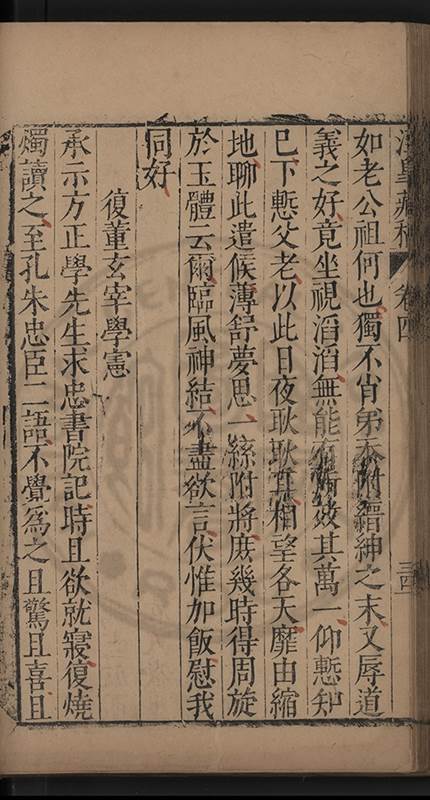 藏稿 卷四 三四
如老公祖何也獨不肖弟忝附縉紳之末又辱道
義之好竟坐視滔滔無能有所效其萬一仰慙知
巳下慙父老以此日夜耿耿真相望各天靡由縮
地聊此遣候薄舒夢思一絲附將庶幾時得周旋
於玉體云爾臨風神結不盡欲言伏惟加飯慰我
同好
復董玄宰學憲
承示方正學先生求忠書院記時且欲就寢復燒
燭讀之至孔朱忠臣二語不覺為之且驚且喜且